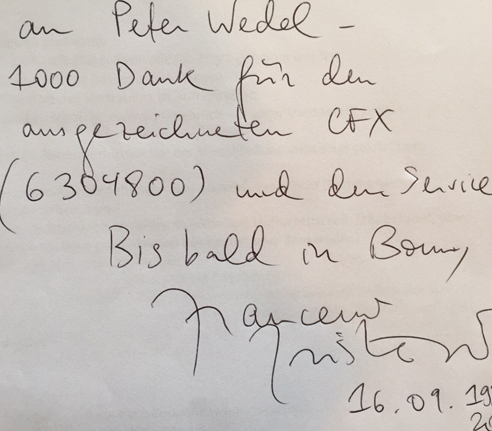 an Peter Wedel -
1000 Dank für den
ausgezeichneten CFX
(6304800) und den Service
Bis bald in Bonn,
16.09.19